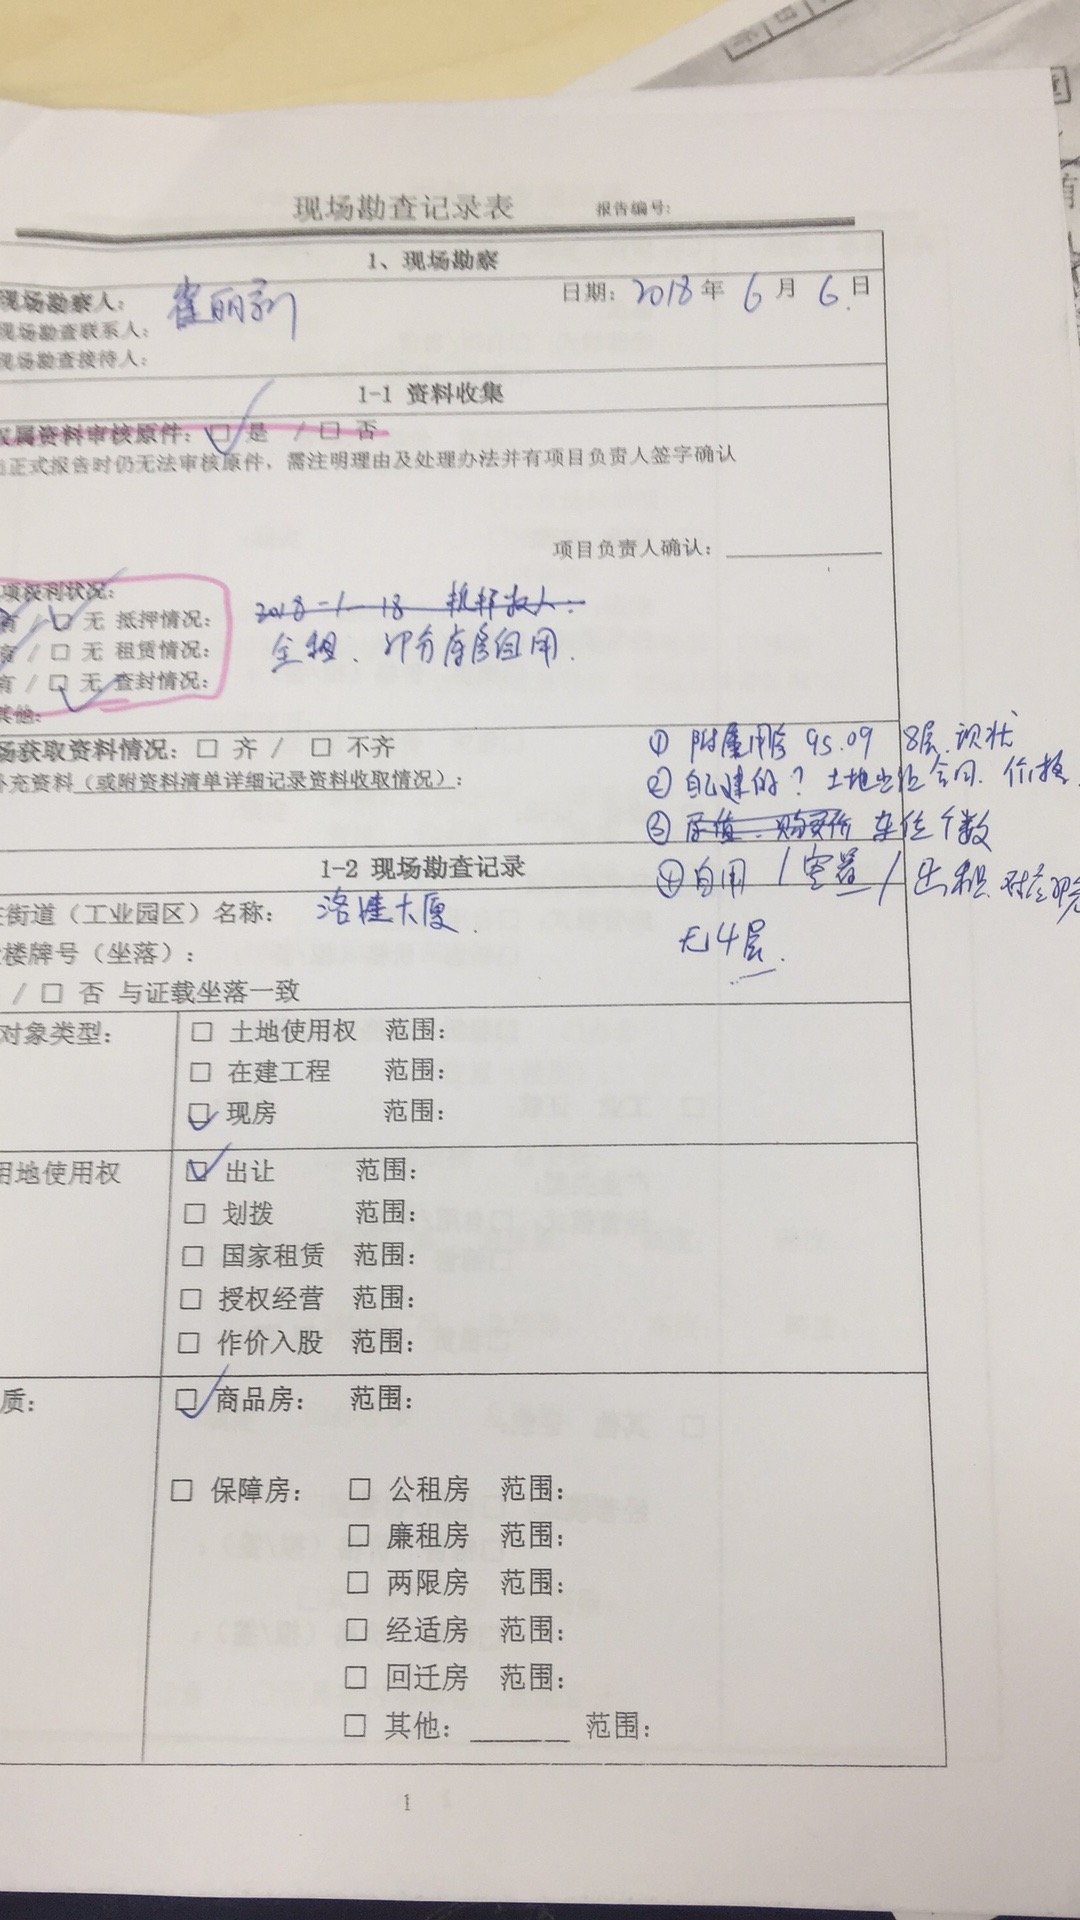 现场勘查记录表 报告编号:
1、现场勘察
现场勘察人: 崔丽 日期: 2018年 6月 6日
现场勘查联系人:
现场勘查接待人:
1-1 资料收集
权属资料审核原件: □ 是 / □ 否
出正式报告时仍无法审核原件, 需注明理由及处理办法并有项目负责人签字确认
项目负责人确认:
项权利状况:
有 / □ 无 抵押情况: 2018-1-18
有 / □ 无 租赁情况: 全租、部分库房自用.
有 / □ 无 查封情况:
其他:
场获取资料情况: □ 齐 / □ 不齐
补充资料(或附资料清单详细记录资料收取情况):
① 附属用房 95.09 8层.现状
② 自己建的? 土地出让合同.价格
③ 原值、购买价 车位个数
④ 自用/空置/出租
无4层.
1-2 现场勘查记录
街道(工业园区)名称: 洛娃大厦.
楼牌号(坐落):
/ □ 否 与证载坐落一致
对象类型: □ 土地使用权 范围:
□ 在建工程 范围:
□ 现房 范围:
用地使用权 □ 出让 范围:
□ 划拨 范围:
□ 国家租赁 范围:
□ 授权经营 范围:
□ 作价入股 范围:
质: □ 商品房: 范围:
□ 保障房: □ 公租房 范围:
□ 廉租房 范围:
□ 两限房 范围:
□ 经适房 范围:
□ 回迁房 范围:
□ 其他: 范围:
1